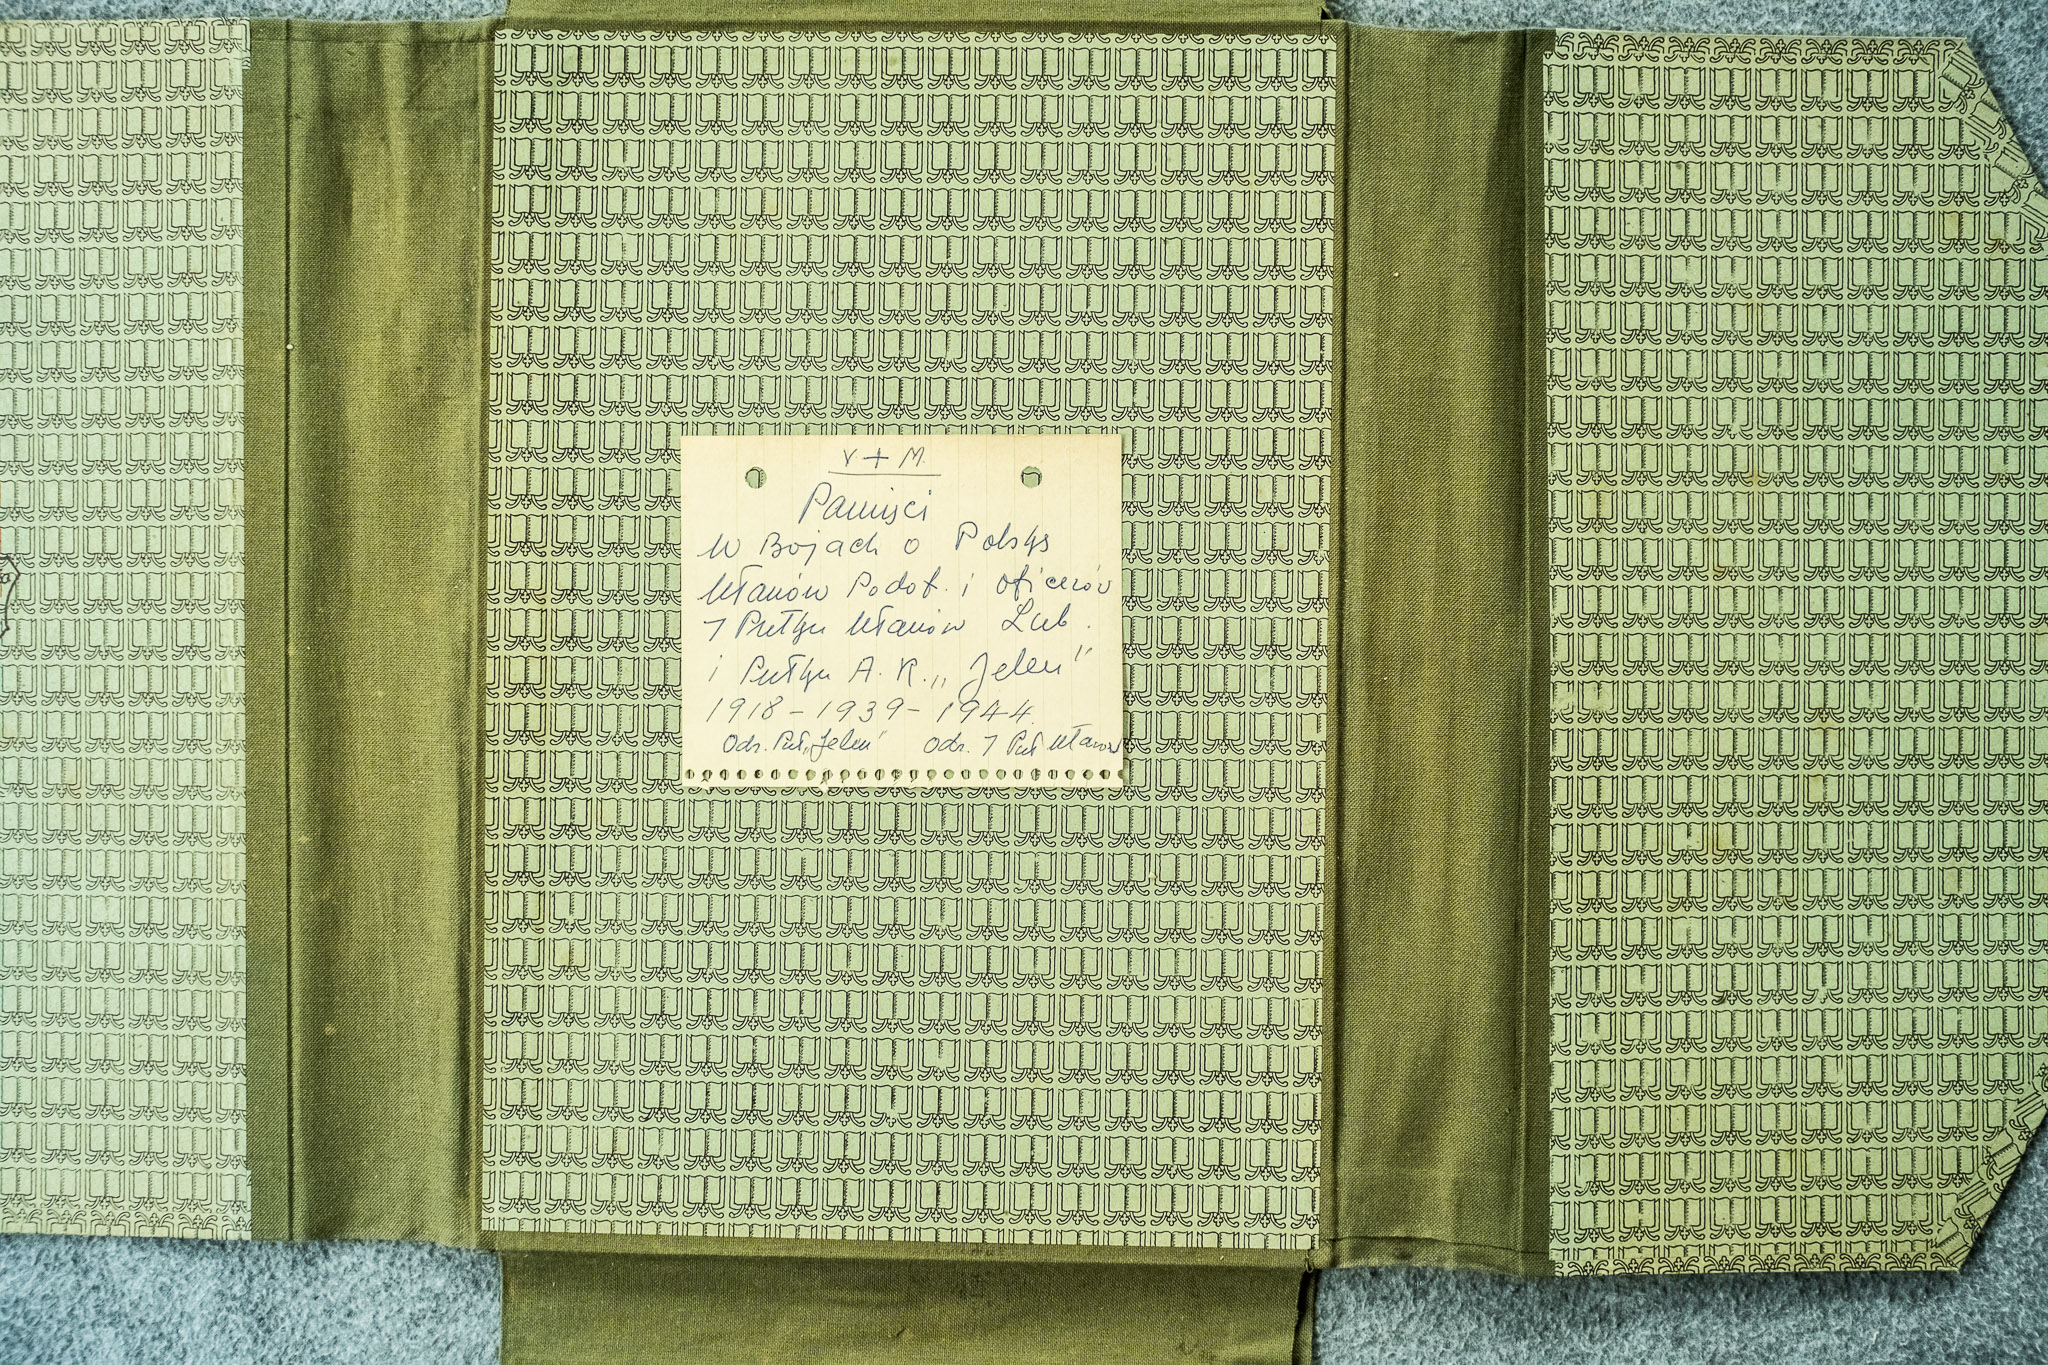 V + M
Pamięci
W Bojach o Polskę
Ułanów Podof. i oficerów
7 Pułku Ułanów Lub.
i Pułku A. K. „Jeleń"
1918 - 1939 - 1944
Odz. Puł „Jeleń" Odz. 7 Puł Ułanów